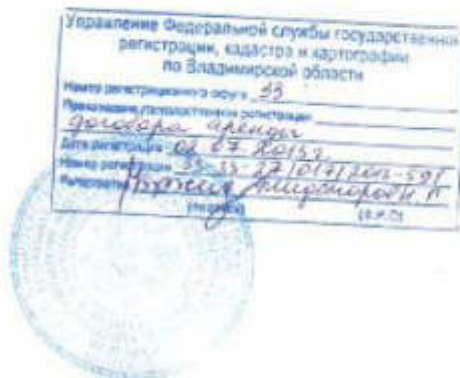 Управление Федеральной службы государственной
регистрации, кадастра и картографии
по Владимирской области
Номер регистрационного округа 33
Произведена государственная регистрация
договора аренды
Дата регистрации 02 07 2013г.
Номер регистрации 33-33-27/017/2013-591
(подпись) (Ф.И.О)